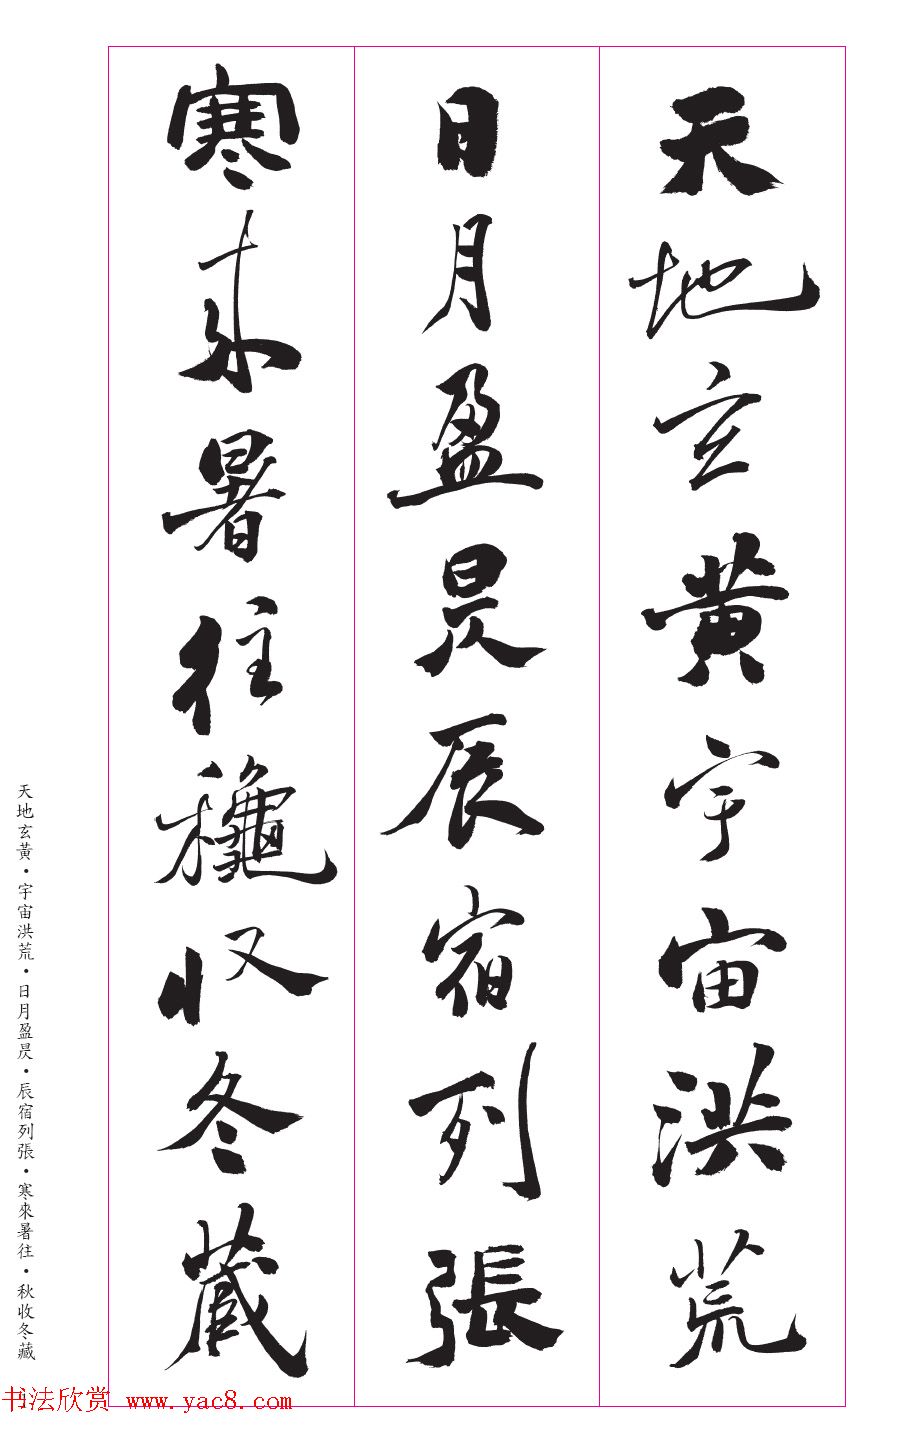 天地玄黃宇宙洪荒
日月盈昃辰宿列張
寒来暑往龝收冬藏
天地玄黃·宇宙洪荒·日月盈昃·辰宿列張·寒來暑往·秋收冬藏
书法欣赏 www.yac8.com